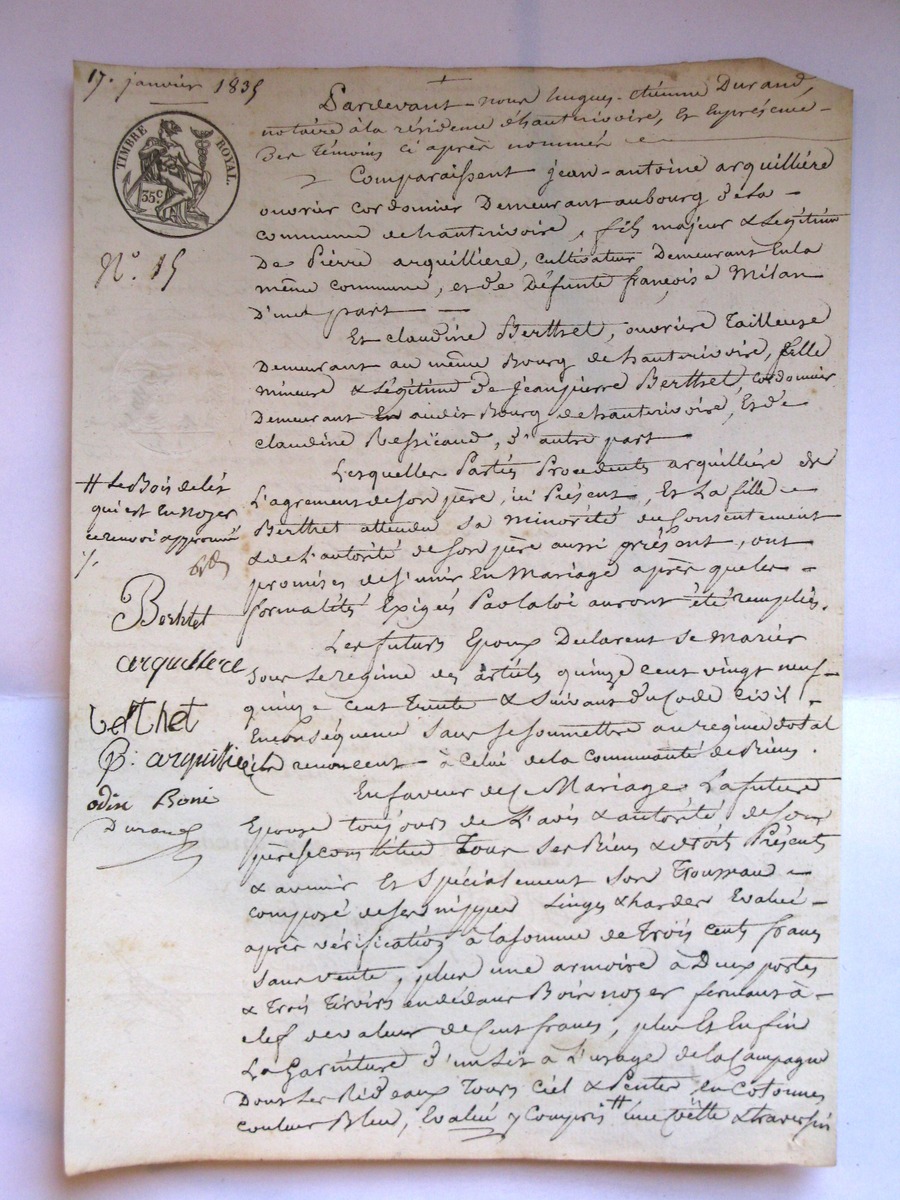 17. janvier 1835
TIMBRE ROYAL.
35c
N.° 15
Pardevant nous hugues-etienne Durand,
notaire à la résidence d'hauterivoire, Et Enprésence
Des Témoins ci après nommés
Comparaissent jean-antoine arquillière
ouvrier cordonier Demeurant aubourg de la
commune de hauterivoire, fils majeur & Légitime
De Pierre arquillière, cultivateur Demeurant En la
même commune, et de Défunte françoise Milan
D'une part
Et claudine Berthet, ouvrière Tailleuse
Demeurant au même Bourg de hauterivoire, fille
mineure & Légitime de Jean pierre Berthet, cordonnier
Demeurant audit Bourg de hauterivoire, Et de
claudine Ressicaud, d'autre part
Lesquelles Parties Procedents arquillière de
L'agrement de son père, ici Présent, Et La fille
Berthet attendu sa minorité du Consentement
& de L'autorité de son père aussi présent, ont
promises de s'unir En Mariage après que les
formalités Exigés Par la loi auront été remplies.
Les futurs Epoux Declarent se marier
sous le regime des articles quinze cent vingt neuf
quinze cent Trente & suivant du Code civil
En conséquence sans se soumettre au regime dotal
ils renoncent à celui de la communauté de Biens.
En faveur de ce Mariage La future
Epouse toujours de L'avis & autorité de son
père se constitue Tous ses Biens & droits Présents
& avenir Et spécialement son Trousseau
composé de ses nippes Linges & hardes Evalué
après vérification à la somme de Trois cents francs
sans vente, plus une armoire à Deux portes
& Trois Tiroirs en dedans Bois noyer fermant à
clef de valeur de Cent francs, plus Et Enfin
La Garniture d'un Lit à L'usage de la Campagne
Dont Les Rideaux Tours ciel & Pentes en Cotonnes
couleur Bleu, Evalué y Compris # une & traversin
# Le Bois de lit
qui est En noyer
ce renvoi approuvé
Berthet
arquillere
berthet
p: arquillie
odin Boni
Durand